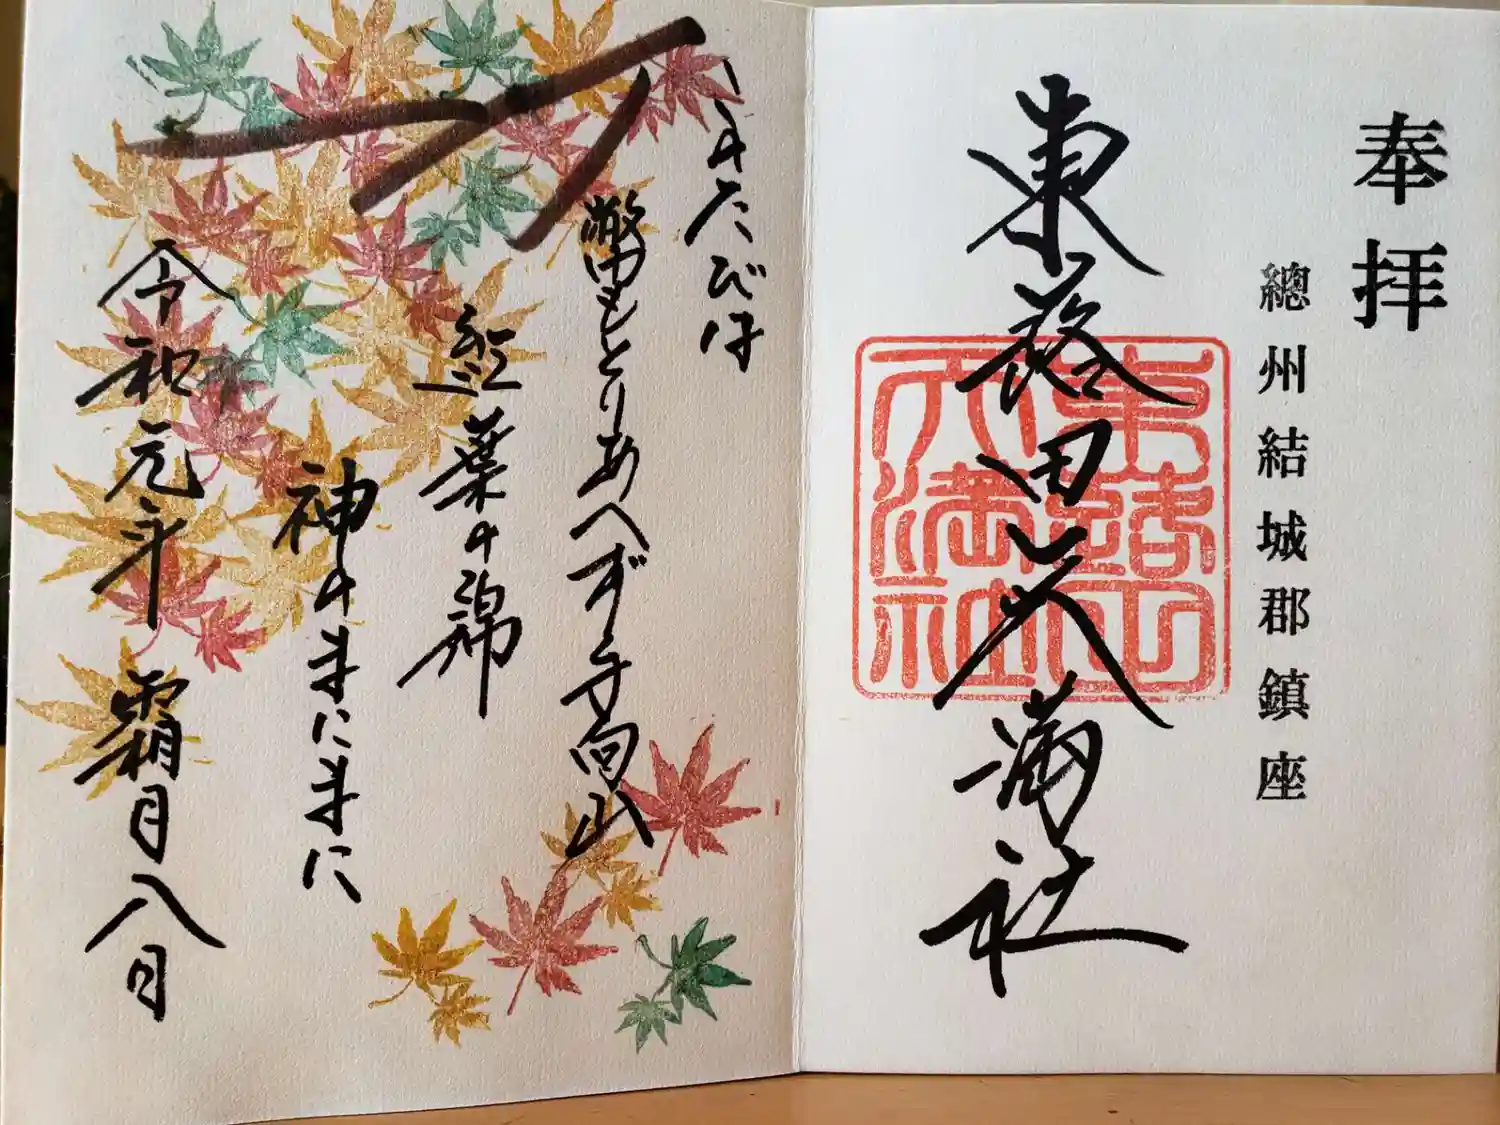 奉拝
總州結城郡鎮座
東蕗田天満社
東蕗田
天満社
このたびは
幣もとりあへず手向山
紅葉の錦
神のまにまに
令和元年霜月八日